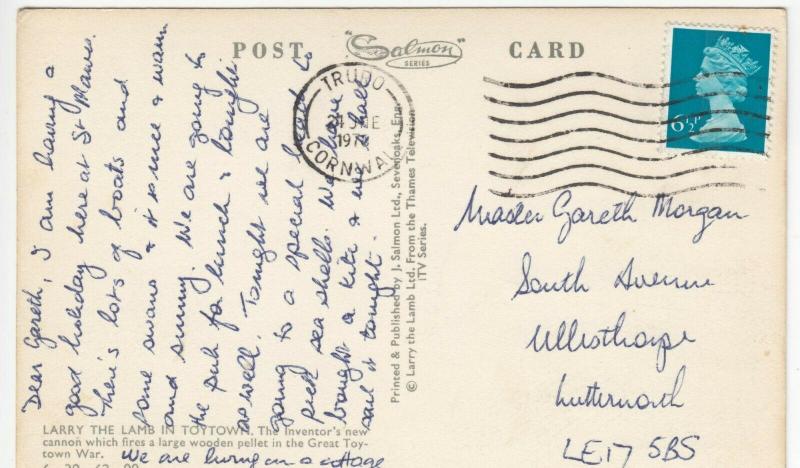 POST
"Salmon"
SERIES
CARD
TRURO
CORNWALL
6½P
Dear Gareth, I am having a
good holiday here at St Mawes.
There's lots of boats and
some swans & it is nice & warm
and sunny. We are going to
the pub for lunch & tonight
as well. Tonight we are
going to a special beach to
pick sea shells. We have
bought a kite & we shall
sail it tonight.
Printed & Published by J. Salmon Ltd., Sevenoaks, Eng.
© Larry the Lamb Ltd. From the Thames Television
ITV Series.
Master Gareth Morgan
South Avenue
Ullesthorpe
Lutterworth
LE17 5BS
LARRY THE LAMB IN TOYTOWN. The Inventor's new
cannon which fires a large wooden pellet in the Great Toy-
town War.
We are living in a cottage